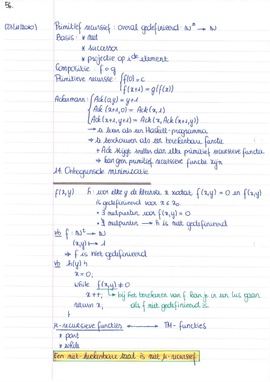 56.
Primitief recursief: overal gedefinieerd N^n → N
Basis: * nul
* successor
* projectie op ide element
Compositie: f ∘ g
Primitieve recursie: { f(0) = c
f(x+1) = g(f(x))
Ackermann: { Ack(0,y) = y+1
Ack(x+1,0) = Ack(x,1)
Ack(x+1,y+1) = Ack(x, Ack(x+1,y))
→ is een Haskell-programma
→ is een berekenbare functie
+ Ack stijgt sneller dan elke primitief recursieve functie
→ kan geen primitief recursieve functie zijn
14. Onbegrensde minimisatie
f(x,y) h: voor elke y de kleinste x zodat f(x,y) = 0 en f(z,y)
is gedefinieerd voor z ≤ x.
* nulpunten voor f(x,y) = 0
nulpunten → h is niet gedefinieerd
vb f: N² → N
(x,y) → 1
→ f is niet gedefinieerd
vb h(y) {
x = 0;
while f(x,y) ≠ 0
x++; → bij het berekenen van f kan je in een lus gaan
return x; als f niet gedefinieerd is.
}
μ-recursieve functies ↔ TM-functies
* part
* while
Een niet berekenbare taal is niet μ-recursief